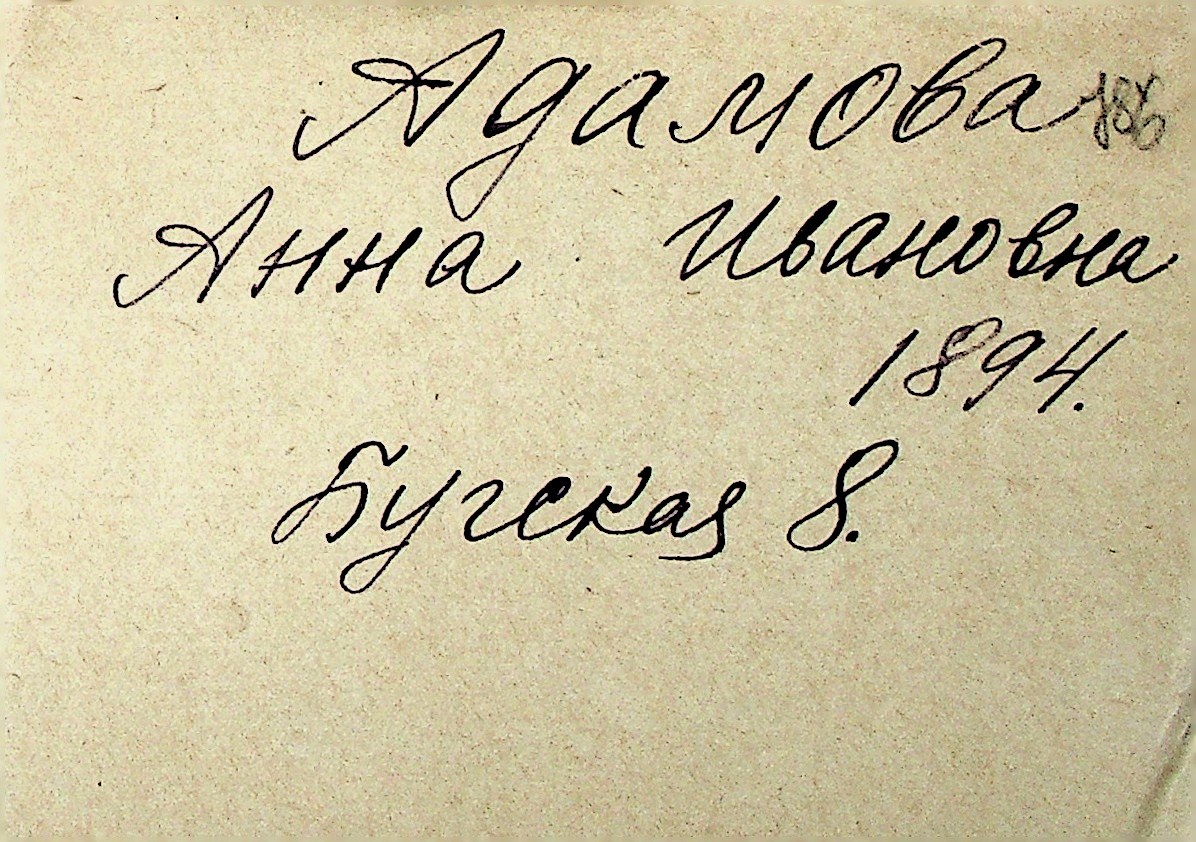 Адамова
Анна Ивановна
1894.
Бугская 8.